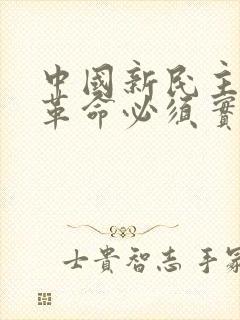 中國新民主
革命必須實
士貴智志手冢